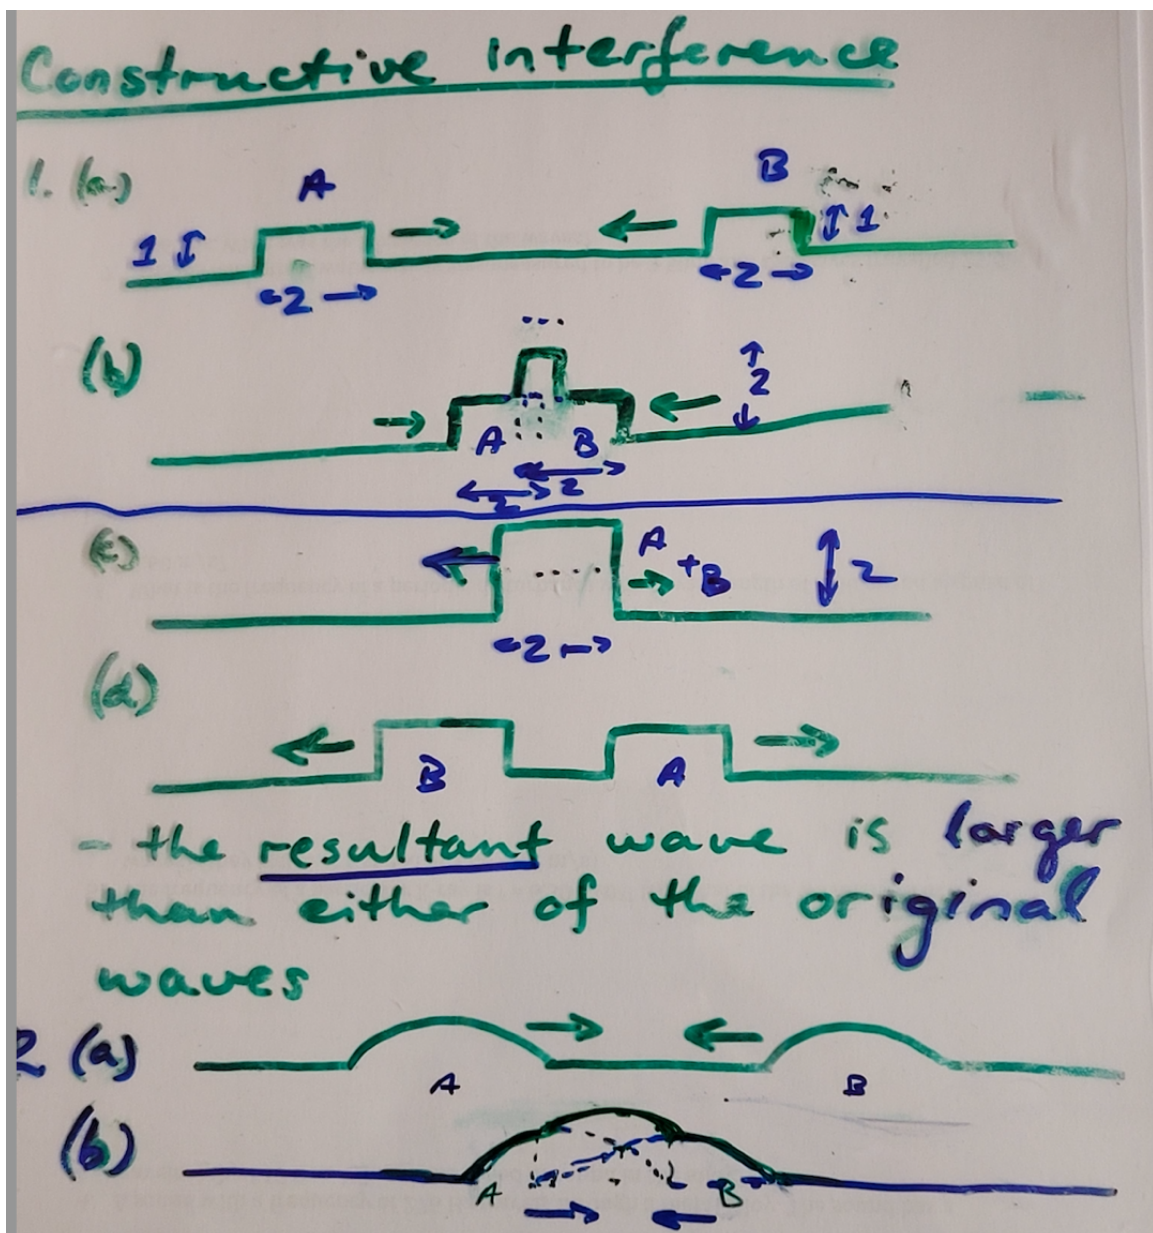 Constructive interference
1. (a) A B
1 1
2 2
(b)
2
A B
2
2
(c) A
+ B
2
2
(d)
B A
- the resultant wave is larger
than either of the original
waves
2 (a)
A B
(b)
A B